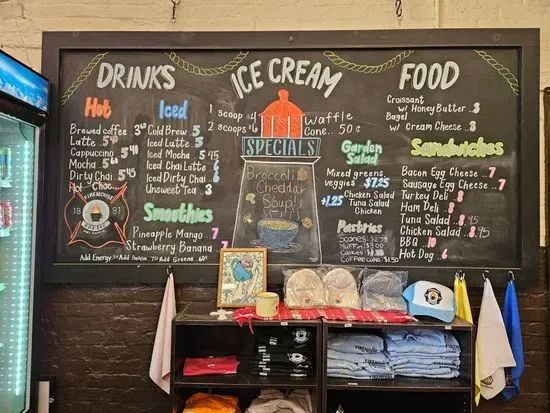 DRINKS
Hot
Brewed coffee 3.45
Latte 5.45
Cappuccino 5.45
Mocha 5.45
Dirty Chai 5.45
Hot Choc
FIREHOUSE
1881
Iced
Cold Brew 5
Iced Latte 5
Iced Mocha 5.45
Iced Chai Latte 6
Iced Dirty Chai 6
Unsweet Tea 3
Smoothies
Pineapple Mango 7
Strawberry Banana 7
Add Energy Add Protein 75¢ Add Greens 60¢
ICE CREAM
1 scoop $4
2 scoops $6
Waffle
Cone.. 50¢
SPECIALS
Broccoli
Cheddar
Soup!
Garden
Salad
Mixed greens
veggies $7.25
+1.25 Chicken Salad
Tuna Salad
Chicken
Pastries
Scones: $2.75
Muffin: $3.00
Cookies
Coffee Cake: $1.50
FOOD
Croissant
w/ Honey Butter.. 3
Bagel
w/ Cream Cheese.. 3
Sandwiches
Bacon Egg Cheese.. 7
Sausage Egg Cheese.. 7
Turkey Deli.. 8
Ham Deli.. 8
Tuna Salad.. 8.95
Chicken Salad.. 8.95
BBQ.. 10
Hot Dog.. 6